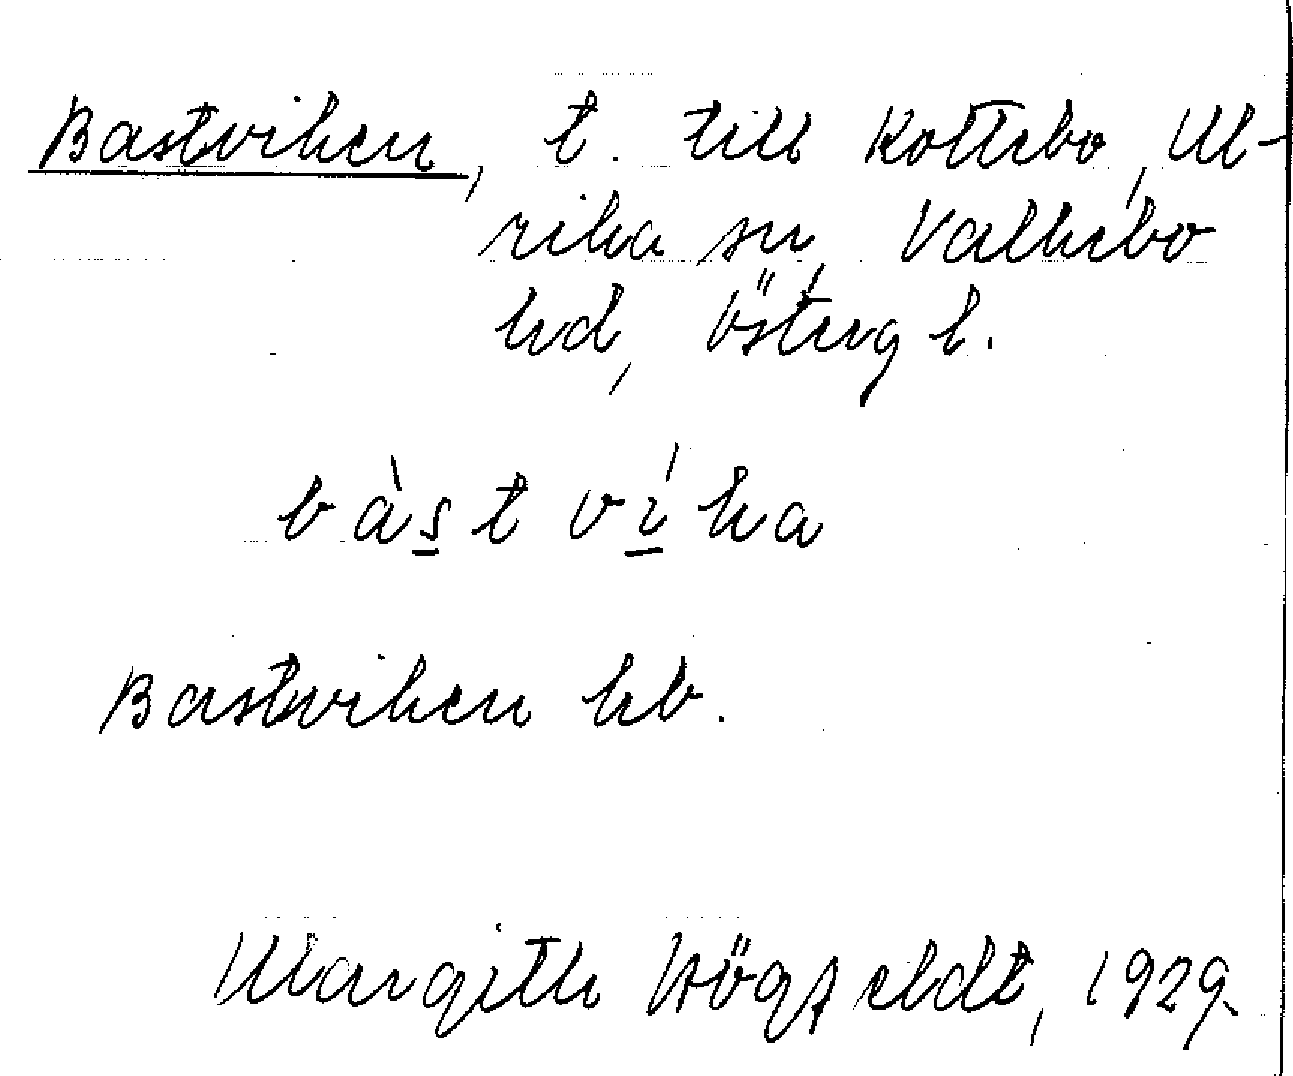 Bastviken, t. till Kottebo, Ul-
rika sn, Valkebo
hd, Östergl.
bàst víka
Bastviken hb.
Margith Högfeldt, 1929.